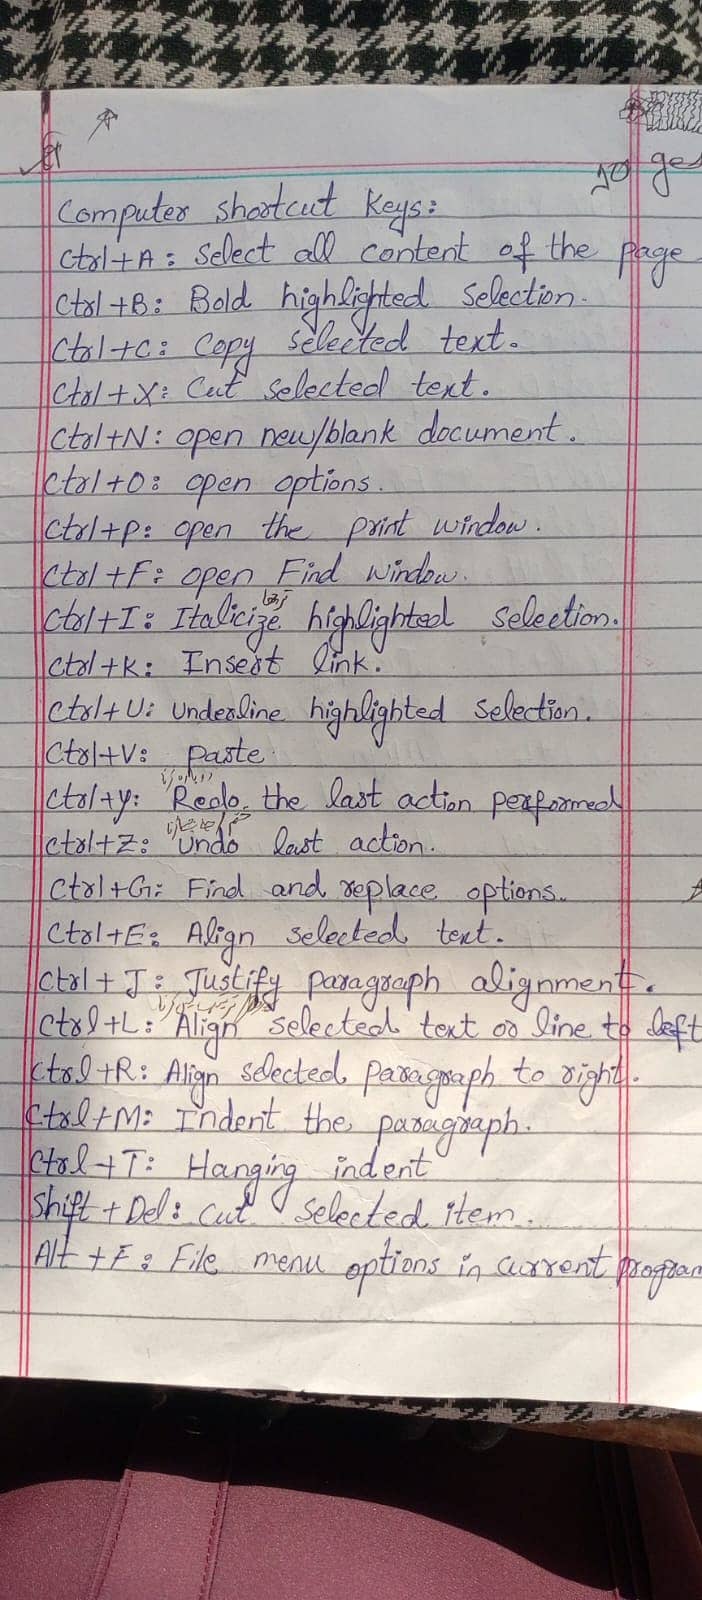 Computer shortcut keys:
Ctrl+A: Select all content of the page
Ctrl+B: Bold highlighted selection.
Ctrl+C: Copy selected text.
Ctrl+X: Cut selected text.
Ctrl+N: open new/blank document.
Ctrl+O: open options.
Ctrl+p: open the print window.
Ctrl+F: open Find window.
Ctrl+I: Italicize highlighted selection.
Ctrl+k: Insert link.
Ctrl+U: Underline highlighted selection.
Ctrl+V: paste
Ctrl+y: Redo the last action performed
Ctrl+Z: Undo last action.
Ctrl+G: Find and replace options.
Ctrl+E: Align selected text.
Ctrl+J: Justify paragraph alignment.
Ctrl+L: Align selected text or line to left
Ctrl+R: Align selected paragraph to right.
Ctrl+M: Indent the paragraph.
Ctrl+T: Hanging indent
Shift+Del: cut selected item.
Alt+F: File menu options in current program